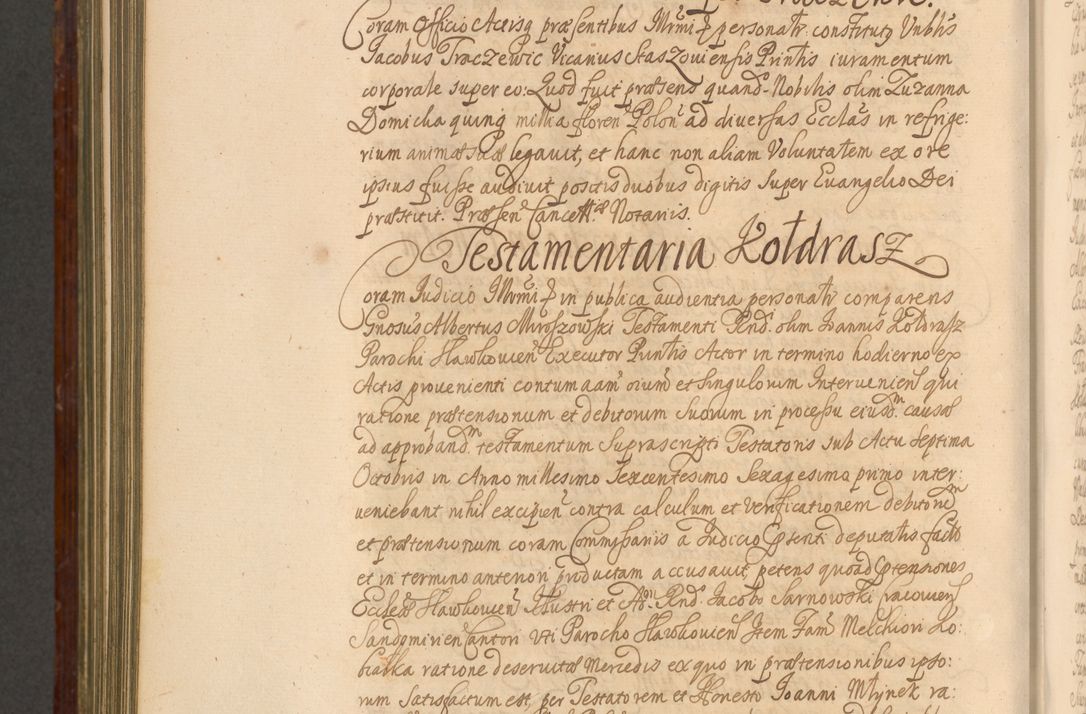 Coram Officio Actisq præsentibus Illrmi ꝑ personalr constitutq Vnblis
Jacobus Traczewic Vicarius Staszouiensis Printis iuramentum
corporale super eo: Quod fuit præsens quand. Nobilis olim Zuzanna
Domicha quinq millia floren Polon ad diuersas Ecclas in refrige:
rium animæ suæ legauit, et hanc non aliam Voluntatem ex ore
ipsius fuisse audiuit positis duobus digitis super Euangelio Dei
præstitit. Præsen Cancell. Notariis.
Testamentaria Kołdrasz
Coram Judicio Illrmi ꝑ in publica audientia personalr comparens
Gnosus Albertus Miroszowski Testamenti Rnd. olim Joannis Kołdrasz
Parochi Slawkouien Executor Printis Actor in termino hodierno ex
Actis prouenienti contumaam oium et singulorum Interuenien qui
ratione prætensionum et debitorum suorum in processu eiusdm causæ
ad approbandm testamentum suprascripti Testatoris sub Actu septima
Octobris in Anno millesimo sexcentesimo sexagesimo primo inter:
ueniebant nihil excipien contra calculum et verificationem debitorum
et prætensionum coram Commissariis a Judicio Pptenti deputatis facto
et in termino anteriori productam accusauit, petens quoad Pptensiones
Ecclesæ Slawkouien Illustri et Ad. Rnd. Jacobo Sarnowski Cracouien
Sandomirien Cantori vti Parocho Slawkouien Item Fam Melchiori Ko:
bialka ratione deseruitæ Mercedis ex quo in prætensionibus ipso:
rum satisfactum est, per Testatorem et Honesto Joanni Młynek ra: